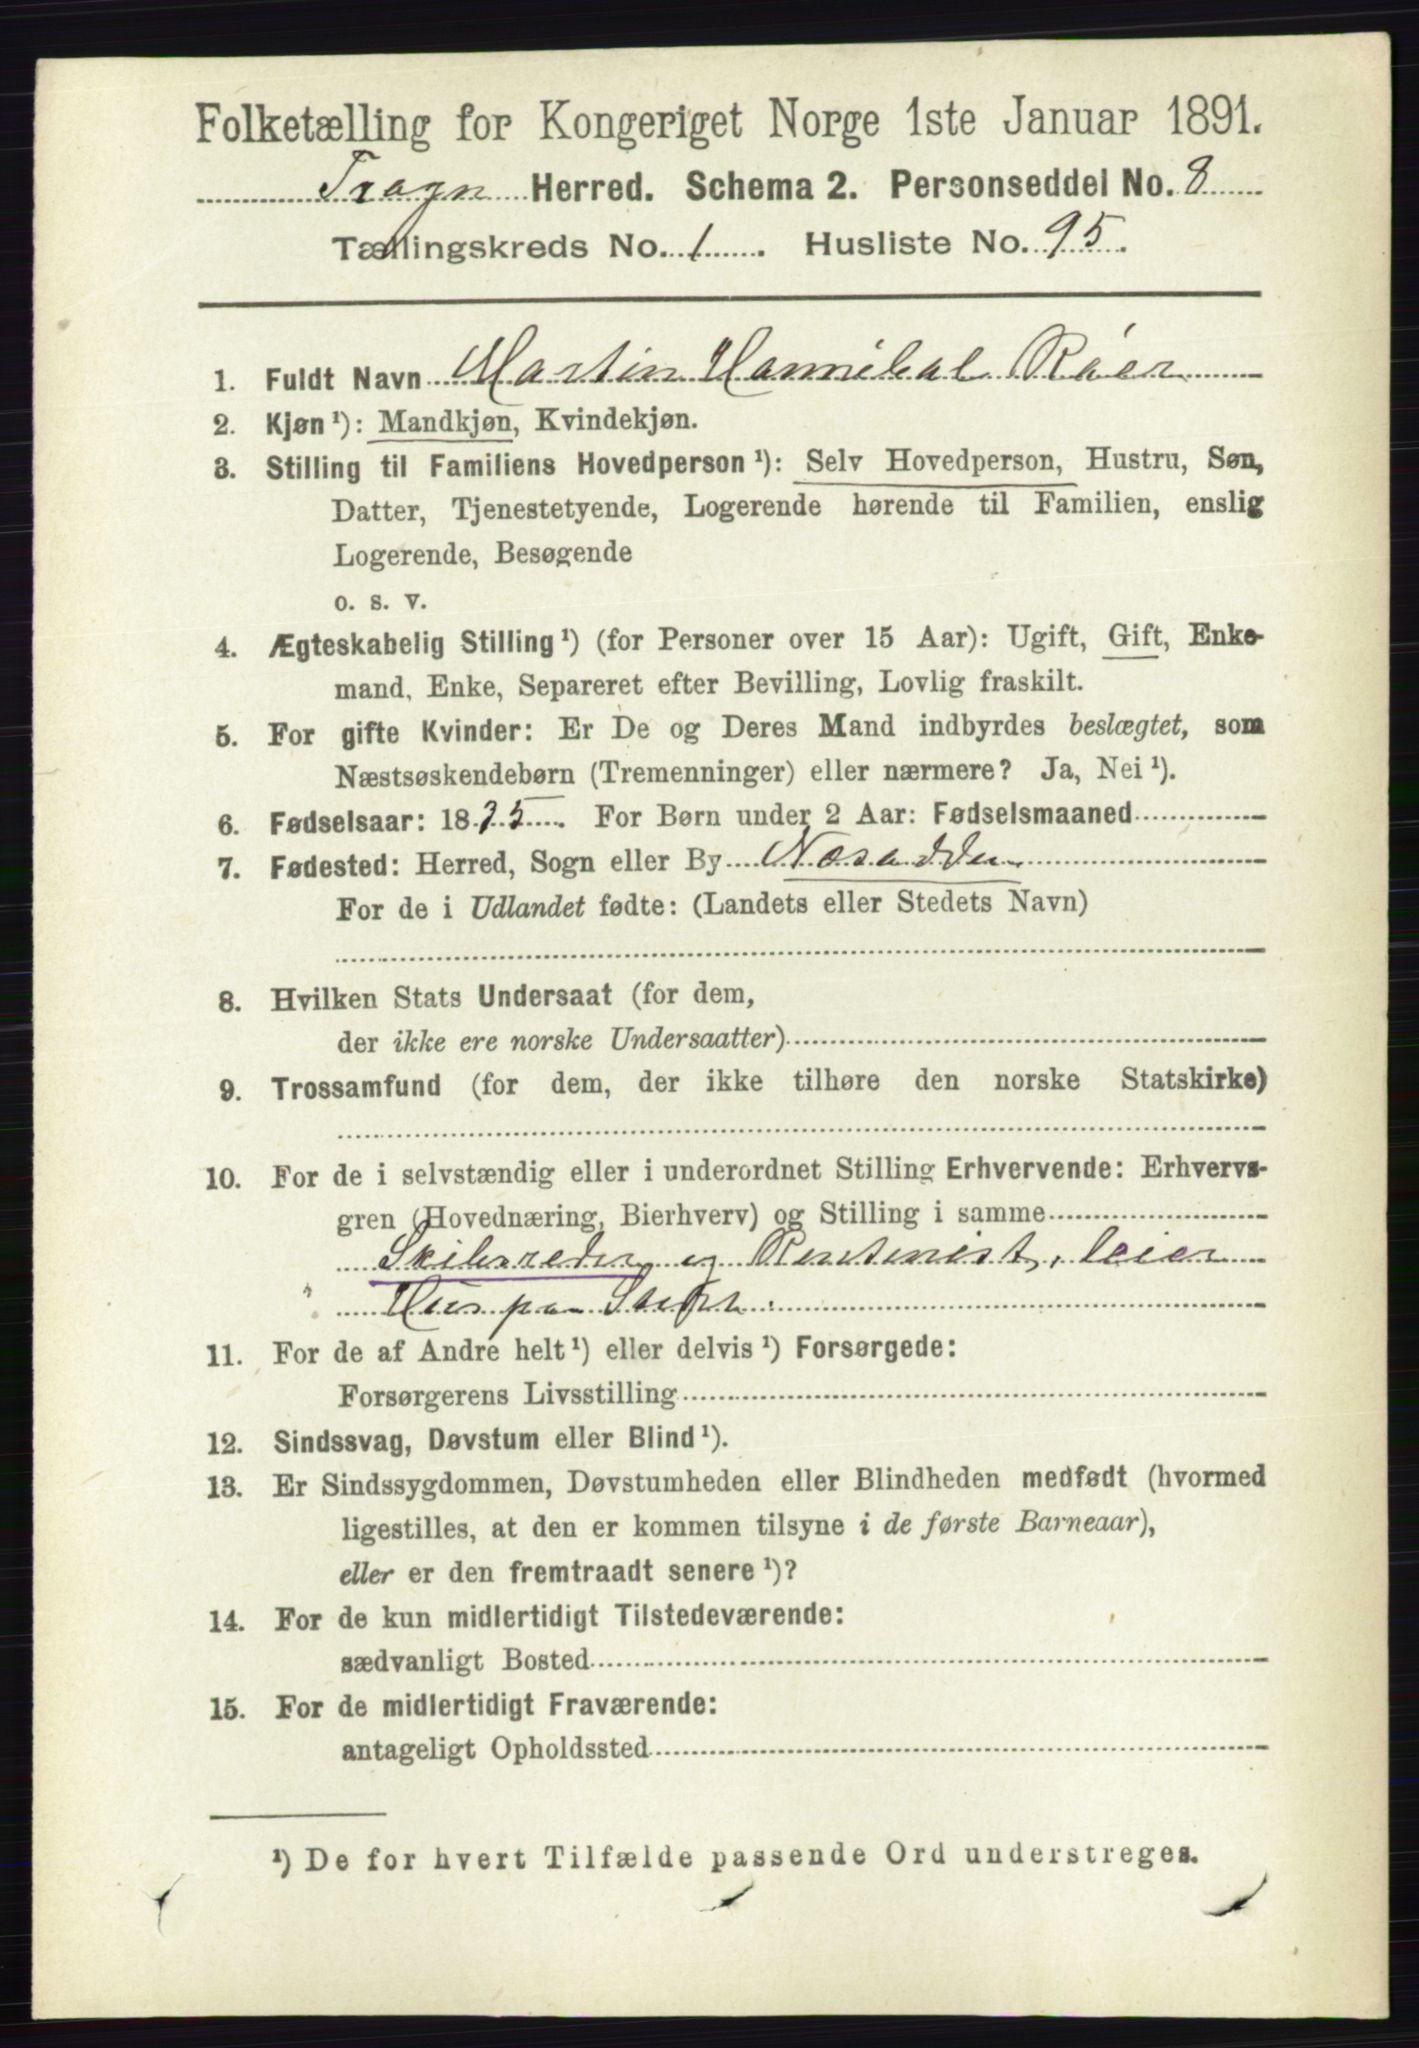 Folketælling for Kongeriget Norge 1ste Januar 1891.
Fragn Herred. Schema 2. Personseddel No. 8
Tællingskreds No. 1. Husliste No. 95.
1. Fuldt Navn Martin Hannibal Røer
2. Kjøn ¹): Mandkjøn, Kvindekjøn.
3. Stilling til Familiens Hovedperson ¹): Selv Hovedperson, Hustru, Søn,
Datter, Tjenestetyende, Logerende hørende til Familien, enslig
Logerende, Besøgende
o. s. v.
4. Ægteskabelig Stilling ¹) (for Personer over 15 Aar): Ugift, Gift, Enke-
mand, Enke, Separeret efter Bevilling, Lovlig fraskilt.
5. For gifte Kvinder: Er De og Deres Mand indbyrdes beslægtet, som
Næstsøskendebørn (Tremenninger) eller nærmere? Ja, Nei ¹).
6. Fødselsaar: 1835. For Børn under 2 Aar: Fødselsmaaned
7. Fødested: Herred, Sogn eller By Næsodden
For de i Udlandet fødte: (Landets eller Stedets Navn)
8. Hvilken Stats Undersaat (for dem,
der ikke ere norske Undersaatter)
9. Trossamfund (for dem, der ikke tilhøre den norske Statskirke)
10. For de i selvstændig eller i underordnet Stilling Erhvervende: Erhvervs-
gren (Hovednæring, Bierhverv) og Stilling i samme
Skibsreder og Rentenist, leier
Hus paa
11. For de af Andre helt ¹) eller delvis ¹) Forsørgede:
Forsørgerens Livsstilling
12. Sindssvag, Døvstum eller Blind ¹).
13. Er Sindssygdommen, Døvstumheden eller Blindheden medfødt (hvormed
ligestilles, at den er kommen tilsyne i de første Barneaar),
eller er den fremtraadt senere ¹)?
14. For de kun midlertidigt Tilstedeværende:
sædvanligt Bosted
15. For de midlertidigt Fraværende:
antageligt Opholdssted
¹) De for hvert Tilfælde passende Ord understreges.